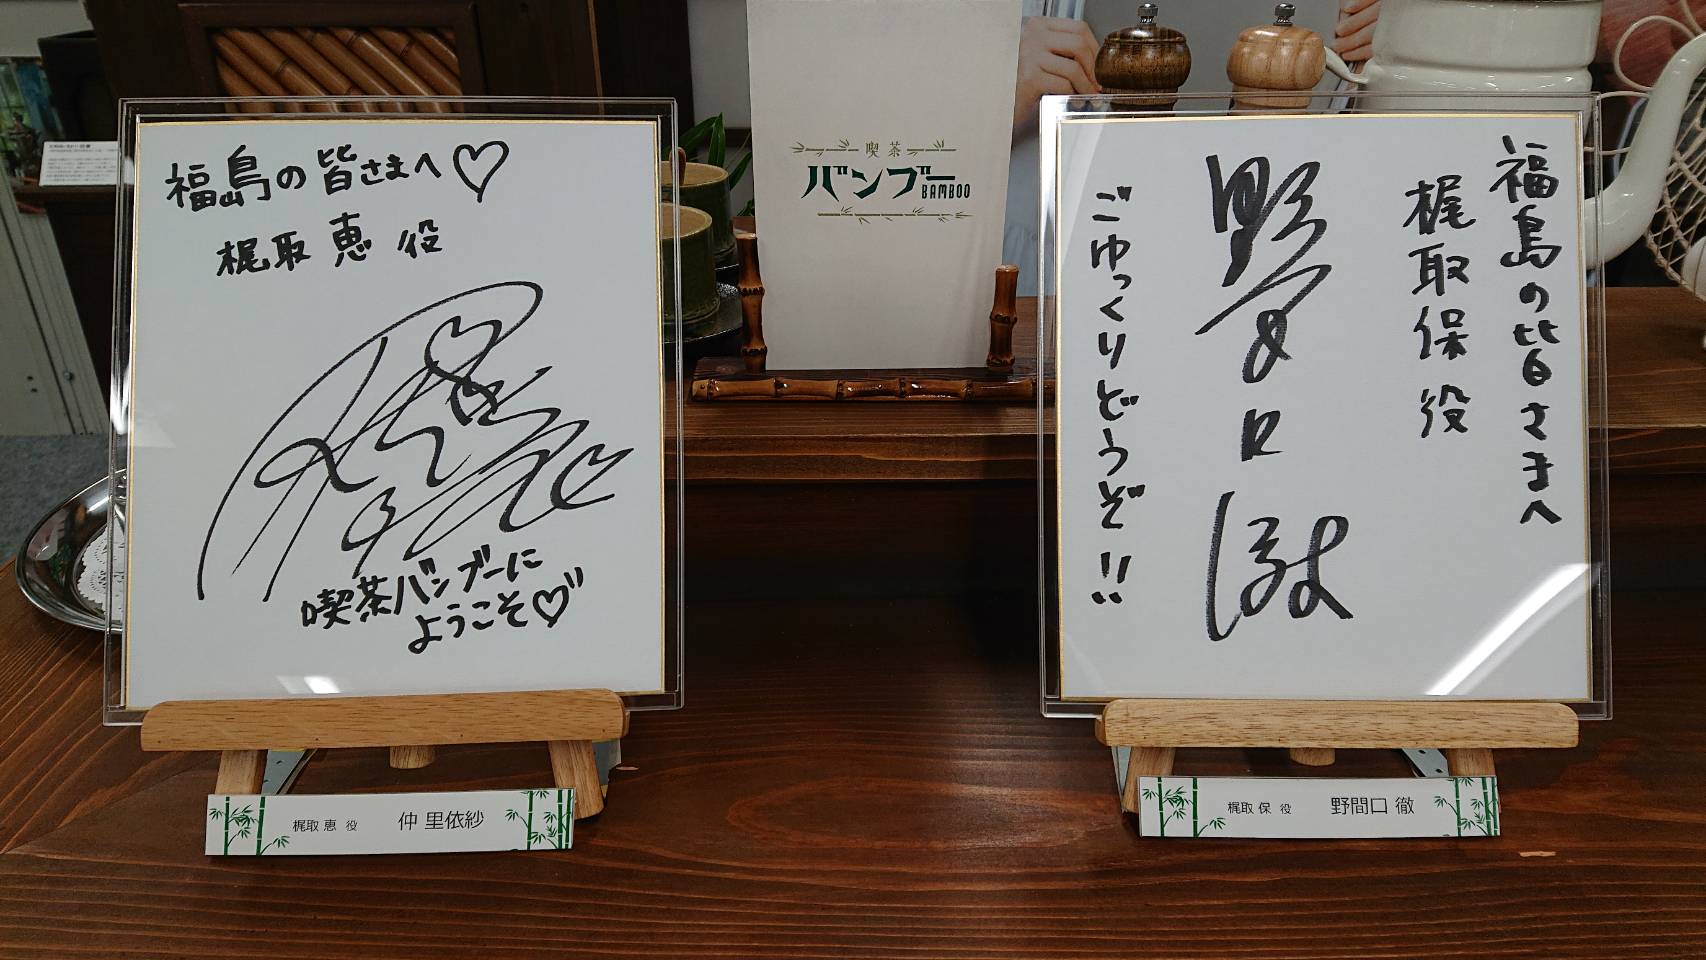 福島の皆さまへ♡
梶取 恵 役
喫茶バンブーに
ようこそ♡
梶取 恵 役 仲 里依紗
喫茶
バンブー
BAMBOO
福島の皆さまへ
梶取保役
野間口徹
ごゆっくりどうぞ!!
梶取 保 役 野間口 徹